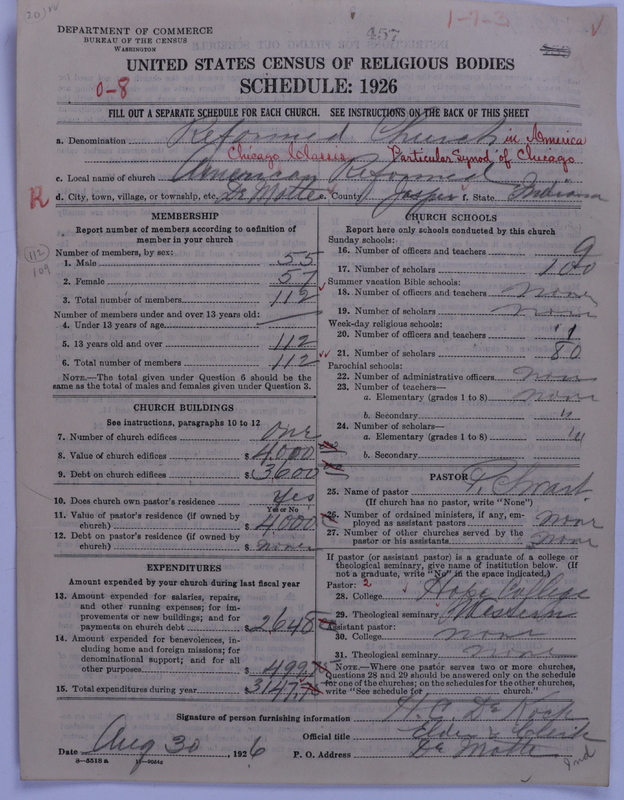 457
1-7-3
DEPARTMENT OF COMMERCE
BUREAU OF THE CENSUS
WASHINGTON
UNITED STATES CENSUS OF RELIGIOUS BODIES
SCHEDULE: 1926
0-8
FILL OUT A SEPARATE SCHEDULE FOR EACH CHURCH. SEE INSTRUCTIONS ON THE BACK OF THIS SHEET
a. Denomination Reformed Church in America
Chicago Classis Particular Synod of Chicago
c. Local name of church American Reformed
R d. City, town, village, or township, etc. De Motte e. County Jasper f. State Indiana
MEMBERSHIP
Report number of members according to definition of member in your church
112
109
Number of members, by sex:
1. Male 55
2. Female 57
3. Total number of members 112
Number of members under and over 13 years old:
4. Under 13 years of age
5. 13 years old and over 112
6. Total number of members 112
NOTE.—The total given under Question 6 should be the same as the total of males and females given under Question 3.
CHURCH BUILDINGS
See instructions, paragraphs 10 to 12
7. Number of church edifices One
8. Value of church edifices $ 4000
9. Debt on church edifices $ 3600
10. Does church own pastor's residence Yes
Yes or No
11. Value of pastor's residence (if owned by church) $ 4000
12. Debt on pastor's residence (if owned by church) $ none
EXPENDITURES
Amount expended by your church during last fiscal year
13. Amount expended for salaries, repairs, and other running expenses; for improvements or new buildings; and for payments on church debt $ 2648
14. Amount expended for benevolences, including home and foreign missions; for denominational support; and for all other purposes $ 499
15. Total expenditures during year $ 3147
CHURCH SCHOOLS
Report here only schools conducted by this church
Sunday schools:
16. Number of officers and teachers 9
17. Number of scholars 100
Summer vacation Bible schools:
18. Number of officers and teachers none
19. Number of scholars none
Week-day religious schools:
20. Number of officers and teachers 1
21. Number of scholars 80
Parochial schools:
22. Number of administrative officers none
23. Number of teachers—
a. Elementary (grades 1 to 8) none
b. Secondary "
24. Number of scholars—
a. Elementary (grades 1 to 8) "
b. Secondary
PASTOR
25. Name of pastor P. Swart
(If church has no pastor, write "None")
26. Number of ordained ministers, if any, employed as assistant pastors none
27. Number of other churches served by the pastor or his assistants none
If pastor (or assistant pastor) is a graduate of a college or theological seminary, give name of institution below. (If not a graduate, write "No" in the space indicated.)
Pastor: 2
28. College Hope College
29. Theological seminary Western
Assistant pastor:
30. College none
31. Theological seminary none
NOTE.—Where one pastor serves two or more churches, Questions 28 and 29 should be answered only on the schedule for one of the churches; on the schedules for the other churches, write "See schedule for church."
Signature of person furnishing information H. C. De Kock
Official title Elder & Clerk
Date Aug 30, 1926 P. O. Address De Motte Ind
8—5518a